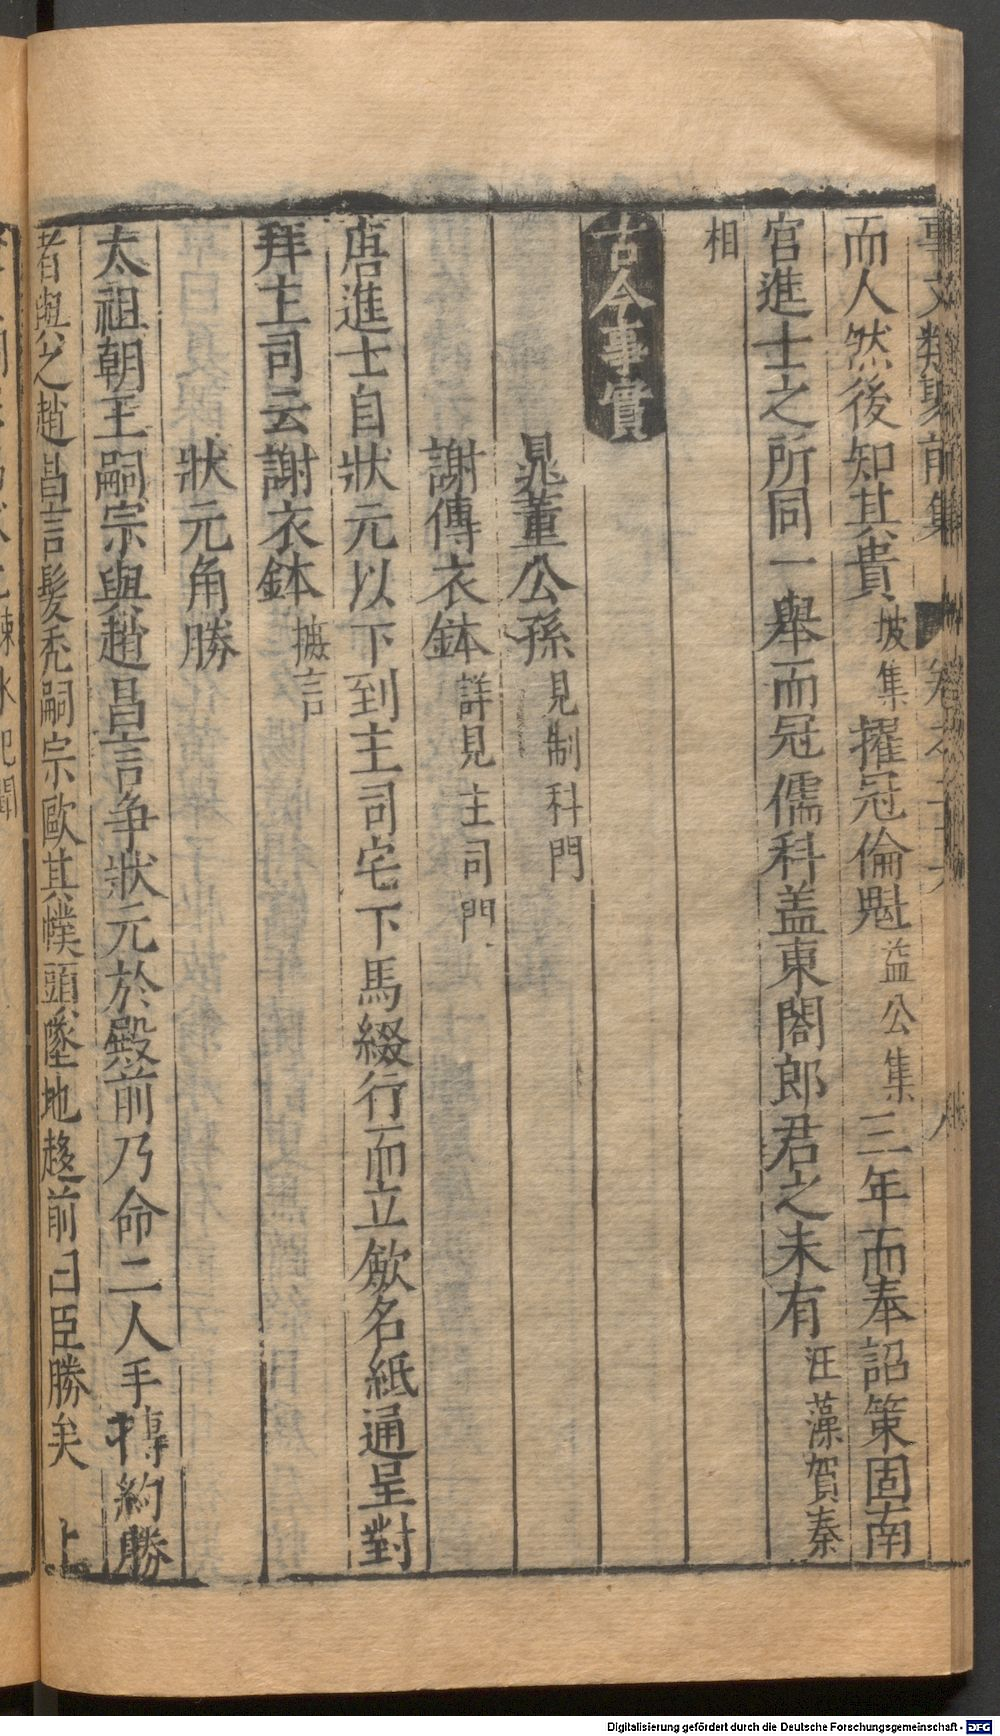 事文類聚前集 卷之二十六 八
而人然後知其貴坡集擢冠倫魁益公集三年而奉詔策固南
宮進士之所同一舉而冠儒科盖東閤郎君之未有汪藻賀秦
相
古今事實
晁董公孫見制科門
謝傳衣鉢詳見主司門
唐進士自狀元以下到主司宅下馬綴行而立歛名紙通呈對
拜主司云謝衣鉢摭言
狀元角勝
太祖朝王嗣宗與趙昌言争狀元於殿前乃命二人手搏約勝
者與之趙昌言髮禿嗣宗歐其幞頭墜地趍前曰臣勝矣 上
涑水紀聞
Digitalisierung gefördert durch die Deutsche Forschungsgemeinschaft - DFG